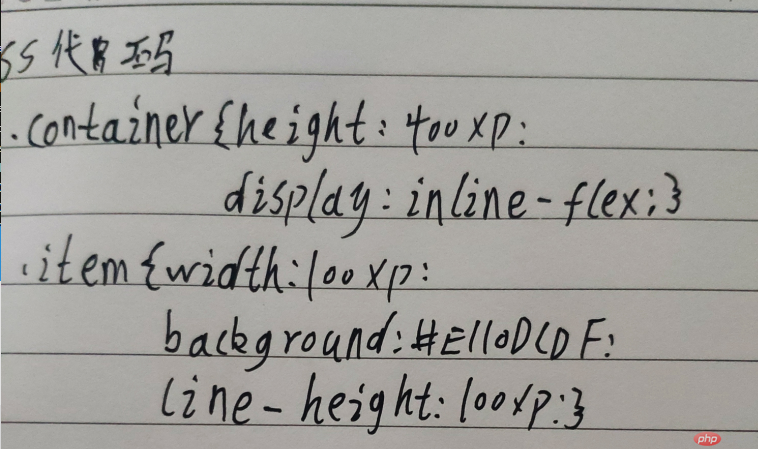 SS代码
.container{height:400xp:
display:inline-flex;}
.item{width:100xp:
background:#E110DCDF:
line-height:100xp:}
php